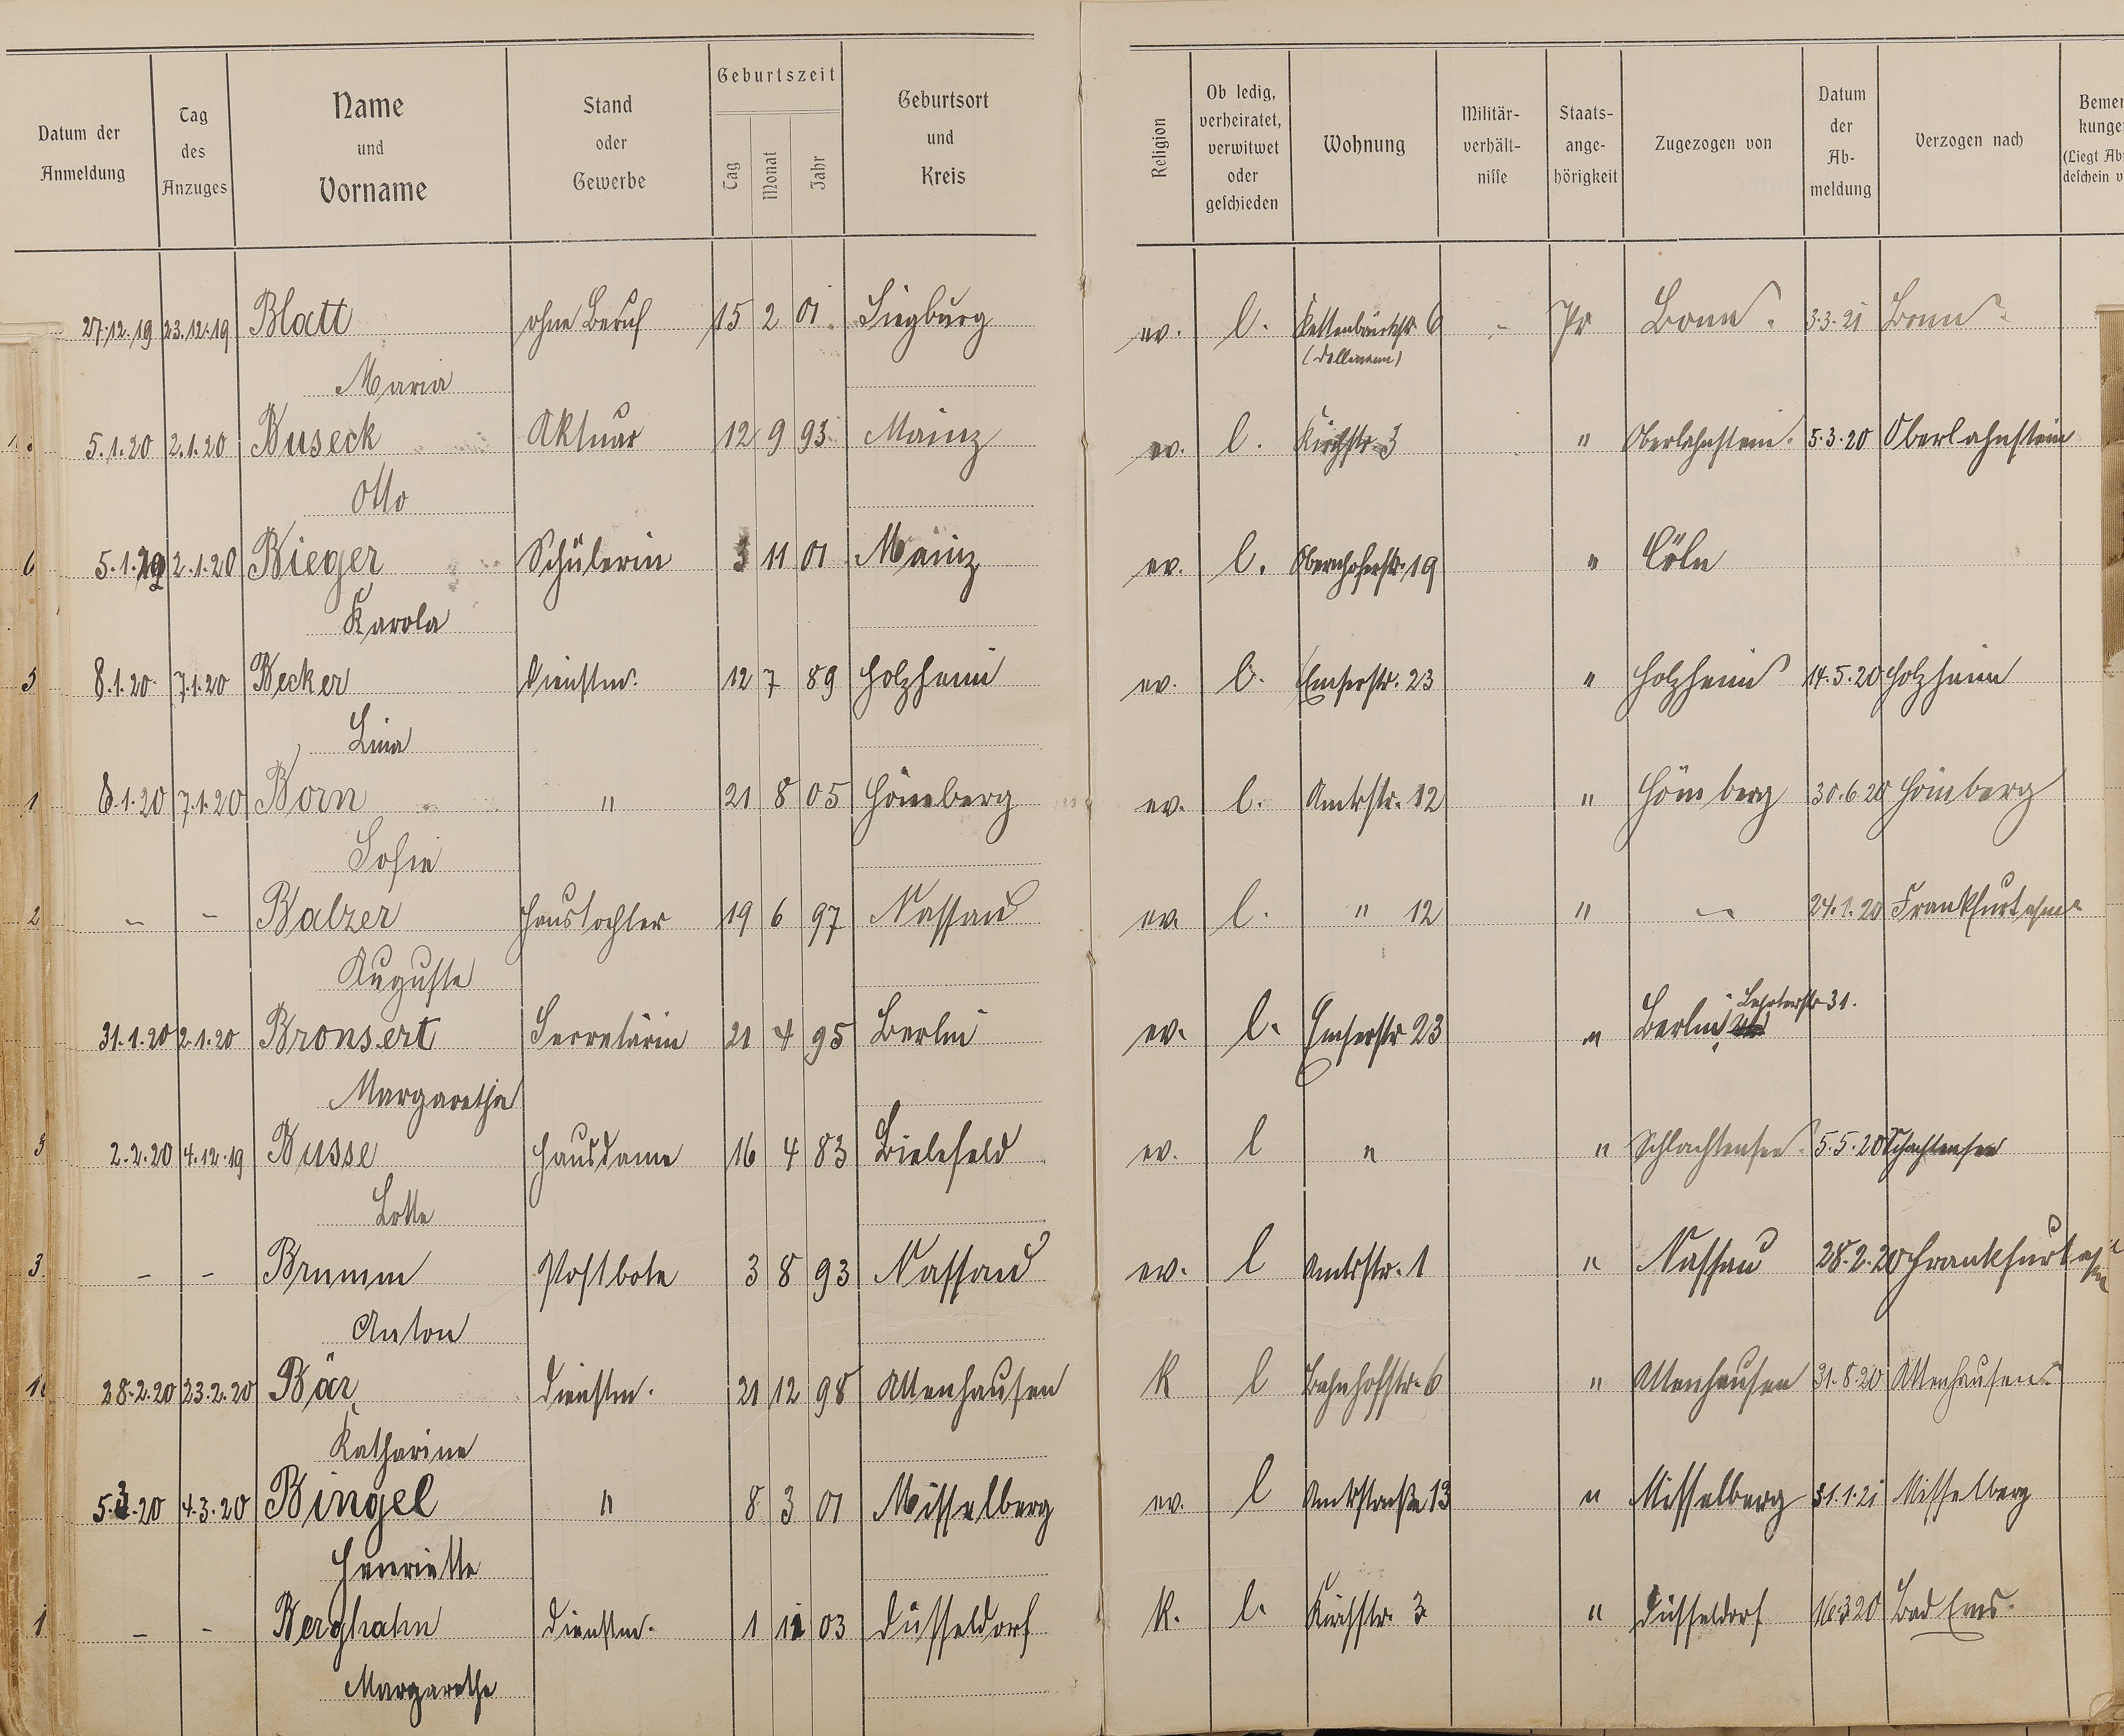 Datum der Anmeldung | Tag des Anzuges | Name und Vorname | Stand oder Gewerbe | Geburtszeit Tag Monat Jahr | Geburtsort und Kreis | Religion | Ob ledig, verheiratet, verwitwet oder geschieden | Wohnung | Militär-verhält-nisse | Staats-ange-hörigkeit | Zugezogen von | Datum der Ab-meldung | Verzogen nach | Bemer kunge (Liegt Ab deschein v
27.12.19 23.12.19 Blatt ohne Beruf 15 2 01 Siegburg ev. l. 6 - Pr Bonn. 3.3.21 Bonn
Maria (Dollmann)
5.1.20 2.1.20 Buseck Aktuar 12 9 93 Mainz ev. l. Kirchstr. 3 " Oberlahnstein. 5.3.20 Oberlahnstein
Otto
6 5.1. 2.1.20 Bieger Schülerin 3 11 01 Mainz ev. l. Obernhoferstr. 19 " Cöln
Karola
5 8.1.20 7.1.20 Becker Dienstm. 12 7 89 Holzheim ev. l. Emserstr. 23 " Holzheim 14.5.20 Holzheim
Lina
1 8.1.20 7.1.20 Born " 21 8 05 Hömberg ev. l. Amtsstr. 12 " Hömberg 30.6.20 Hömberg
Sofie
2 - - Balzer Haustochter 19 6 97 Nassau ev. l. " 12 " - 24.1.20 Frankfurt a/m
Auguste
31.1.20 2.1.20 Bronsert Secretärin 21 4 95 Berlin ev. l. Emserstr 23 " Berlin, 31.
Margaretha
5 2.2.20 4.12.19 Busse Hausdame 16 4 83 Bielefeld ev. l " " Schlachtensee. 5.5.20 Schachtensee
Lotte
3. - - Brumm Postbote 3 8 93 Nassau ev. l Amtsstr. 1 " Nassau 28.2.20 Frankfurt a/m
Anton
28.2.20 23.2.20 Bär Dienstm. 21 12 98 Attenhausen K l Bahnhofstr. 6 " Attenhausen 31.8.20 Attenhausen
Katharine
5.3.20 4.3.20 Bingel " 8 3 01 Misselberg ev. l Amtstraße 13 " Misselberg 31.1.21 Misselberg
Henriette
1 - - Berghahn Dienstm. 1 11 03 Düsseldorf K. l. Kirchstr. 3 " Düsseldorf 16.3.20 Bad Ems.
Margarethe